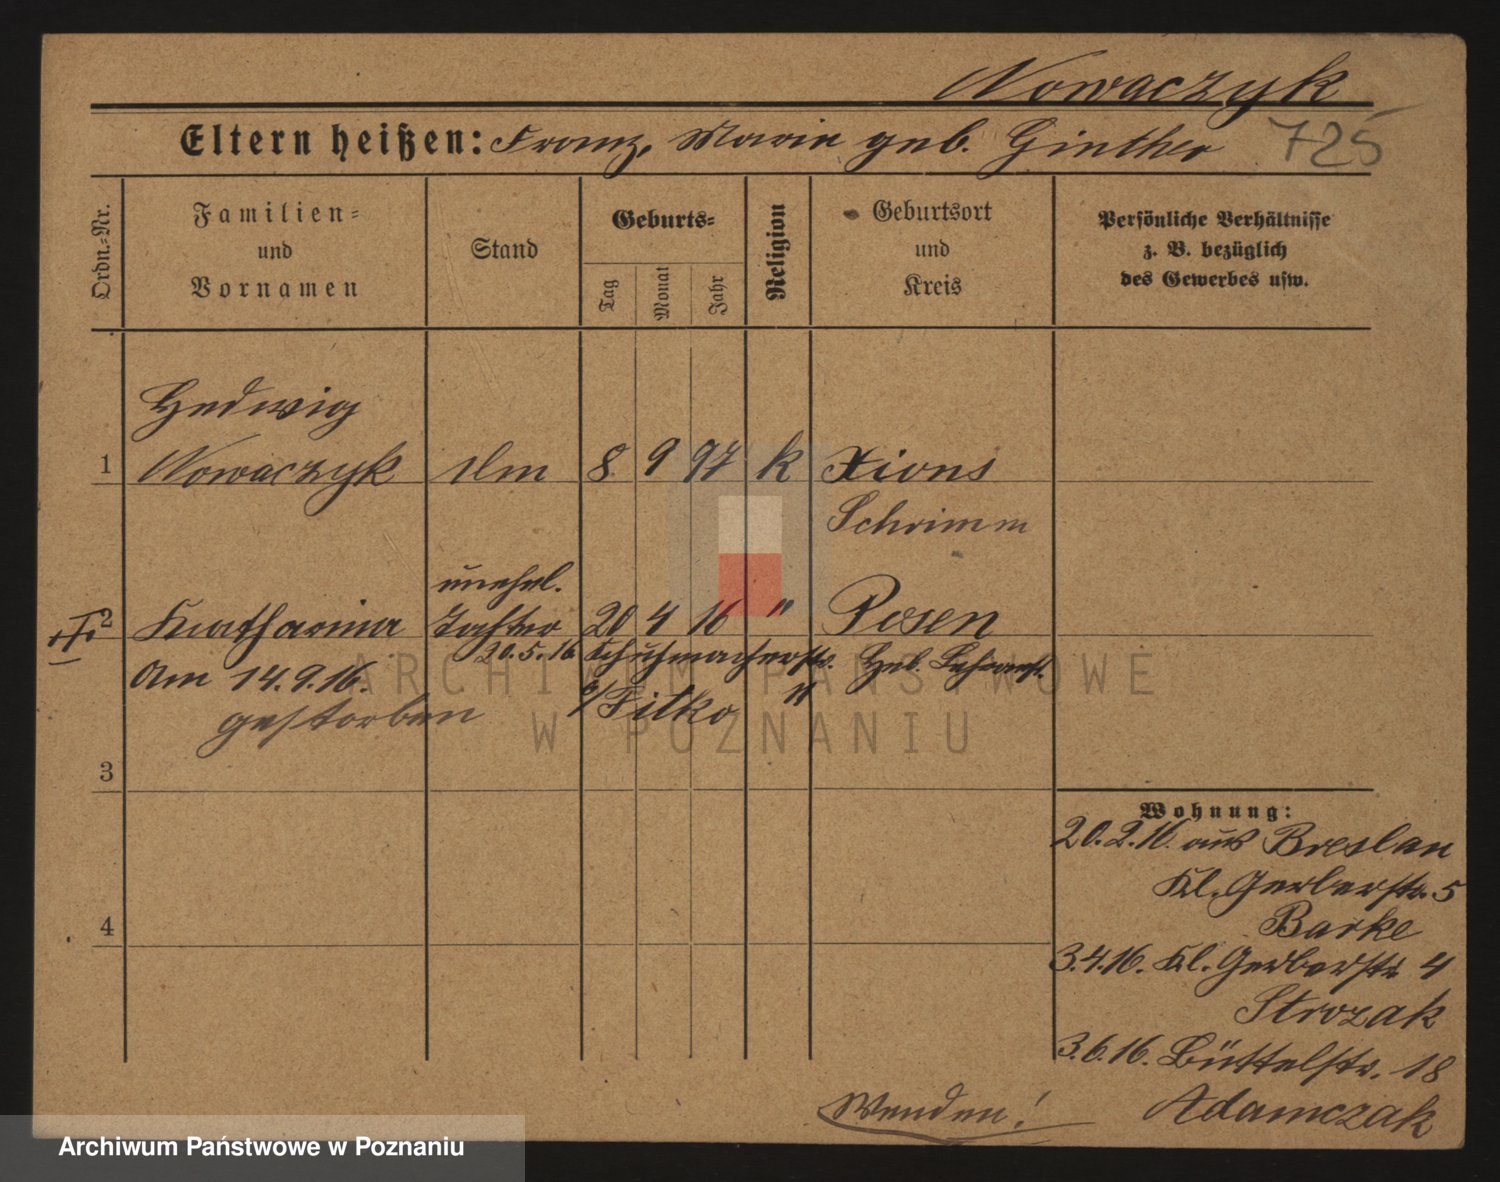 Nowaczyk
Eltern heißen: Franz, Marie geb. Ginther 725
Ordn.=Nr.
Familien=
und
Vornamen
Stand
Geburts=
Tag
Monat
Jahr
Religion
Geburtsort
und
Kreis
Persönliche Verhältnisse
z. B. bezüglich
des Gewerbes usw.
Hedwig
1 Nowaczyk 8 9 97 k Xions
Schrimm
unehel.
2 Katharina Tochter 20 4 16 " Posen
20.5.16 Schuhmacherstr. Heb. Lehranst.
Am 14.9.16. b/Filko 11
gestorben
3
Wohnung:
20.2.16. aus Breslau
Kl. Gerberstr. 5
Barke
4
3.4.16. Kl. Gerberstr 4
Strozak
3.6.16. Büttelstr. 18
Wenden! Adamczak
ARCHIWUM PAŃSTWOWE
W POZNANIU
Archiwum Państwowe w Poznaniu